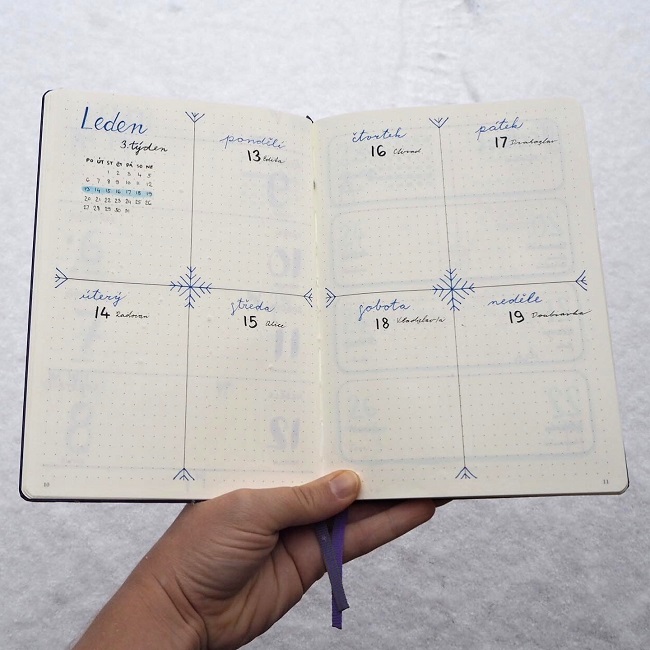 Leden
3. týden
PO ÚT ST ČT PÁ SO NE
1 2 3 4 5
6 7 8 9 10 11 12
13 14 15 16 17 18 19
20 21 22 23 24 25 26
27 28 29 30 31
pondělí
13 Edita
úterý
14 Radovan
středa
15 Alice
čtvrtek
16 Ctirad
pátek
17 Drahoslav
sobota
18 Vladislav/a
neděle
19 Doubravka
10
11